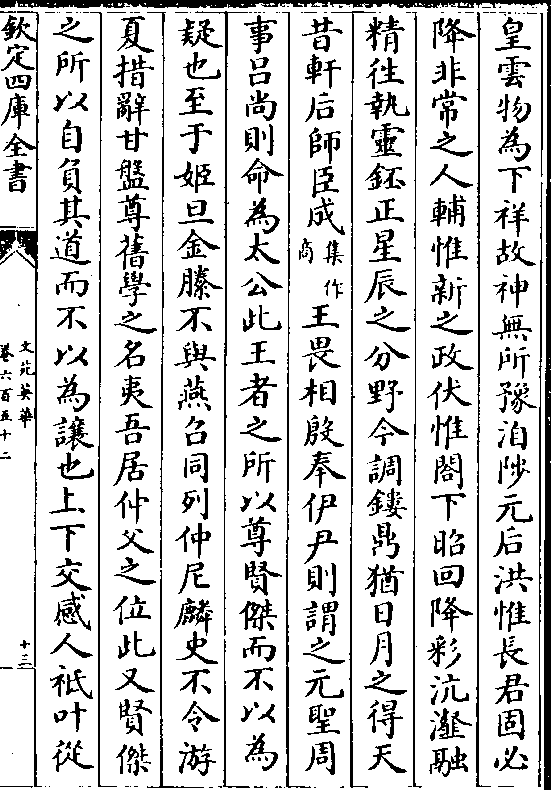 皇雲物為下祥故神無所豫洎陟元后洪惟長君固必
降非常之人輔惟新之政伏惟閤下昭回降彩沆瀣融
精徃執靈鈺正星辰之分野今調鏤鼎猶日月之得天
昔軒后師臣成集作商王畏相殷奉伊尹則謂之元聖周
事吕尚則命為太公此王者之所以尊賢傑而不以為
疑也至于姬旦金縢不與燕召同列仲尼麟史不令游
夏措辭甘盤尊舊學之名夷吾居仲父之位此又賢傑
之所以自負其道而不以為讓也上下交感人祗叶從
欽定四庫全書
文苑英華
卷六百五十二
十三